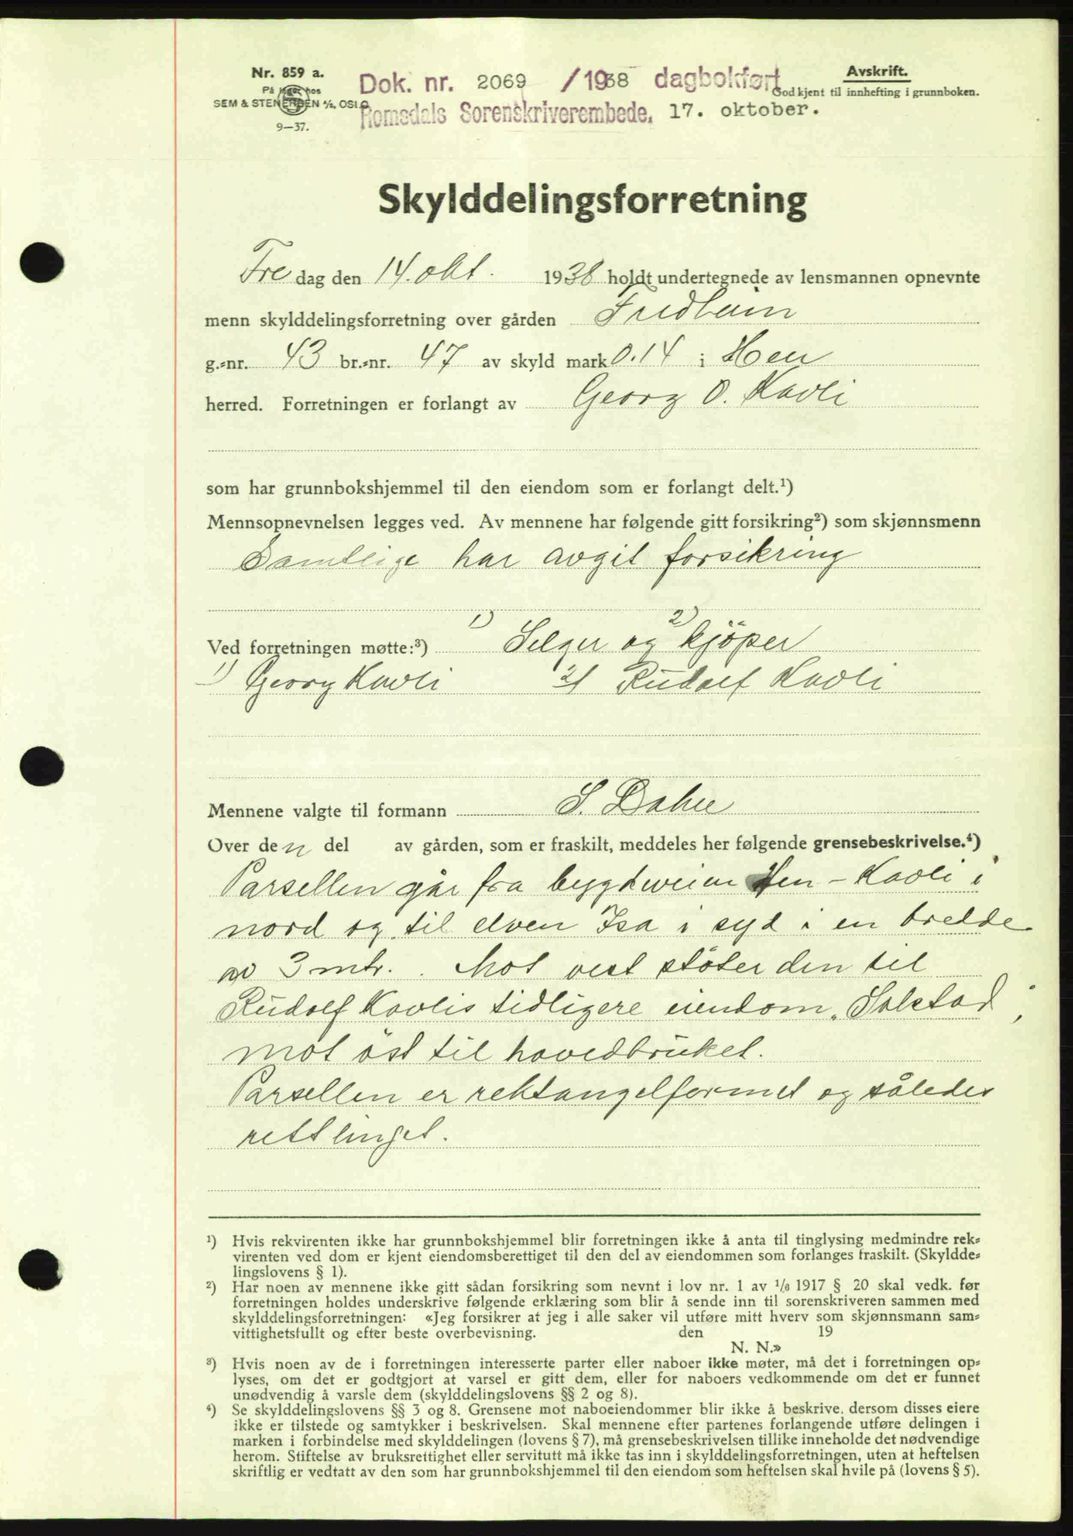 Nr. 859 a.
På lager hos
SEM & STENERSEN A/S, OSLO
9—37.
Dok. nr. 2069 /1938 dagbokført
Romsdals Sorenskriverembede, 17. oktober.
Avskrift.
Godkjent til innhefting i grunnboken.
Skylddelingsforretning
Fre dag den 14. okt. 1938 holdt undertegnede av lensmannen opnevnte
menn skylddelingsforretning over gården Fredheim
g.-nr. 43 br.-nr. 47 av skyld mark 0.14 i Hen
herred. Forretningen er forlangt av Georg O. Kavli
som har grunnbokshjemmel til den eiendom som er forlangt delt.¹)
Mennsopnevnelsen legges ved. Av mennene har følgende gitt forsikring²) som skjønnsmenn
Samtlige har avgit forsikring
Ved forretningen møtte:³) 1) Selger og 2) kjöper
1) Georg Kavli 2) Rudolf Kavli
Mennene valgte til formann S. Dahle
Over den del av gården, som er fraskilt, meddeles her følgende grensebeskrivelse.⁴)
Parsellen går fra bygdveien Hen - Kavli i
nord og til elven Isa i syd i en bredde
av 3 mtr. . Mot vest stöter den til
Rudolf Kavlis tidligere eiendom „Solstad",
mot öst til hovedbruket.
Parsellen er rektangelformet og således
rettlinjet.
¹) Hvis rekvirenten ikke har grunnbokshjemmel blir forretningen ikke å anta til tinglysing medmindre rek-
virenten ved dom er kjent eiendomsberettiget til den del av eiendommen som forlanges fraskilt. (Skyldde-
lingslovens § 1).
²) Har noen av mennene ikke gitt sådan forsikring som nevnt i lov nr. 1 av 1/6 1917 § 20 skal vedk. før
forretningen holdes underskrive følgende erklæring som blir å sende inn til sorenskriveren sammen med
skylddelingsforretningen: «Jeg forsikrer at jeg i alle saker vil utføre mitt hverv som skjønnsmann sam-
vittighetsfullt og efter beste overbevisning. den 19
N. N.»
³) Hvis noen av de i forretningen interesserte parter eller naboer ikke møter, må det i forretningen op-
lyses, om det er godtgjort at varsel er gitt dem, eller for naboers vedkommende om det er funnet
unødvendig å varsle dem (skylddelingslovens §§ 2 og 8).
⁴) Se skylddelingslovens §§ 3 og 8. Grensene mot naboeiendommer blir ikke å beskrive. dersom disses eiere
ikke er tilstede og samtykker i beskrivelsen. Skal mennene efter partenes forlangende utføre delingen i
marken i forbindelse med skylddelingen (lovens § 7), må grensebeskrivelsen tillike inneholde det nødvendige
herom. Stiftelse av bruksrettighet eller servitutt må ikke tas inn i skylddelingsforretningen, uten at heftelsen
skriftlig er vedtatt av den som har grunnbokshjemmel til den eiendom som heftelsen skal hvile på (lovens § 5).